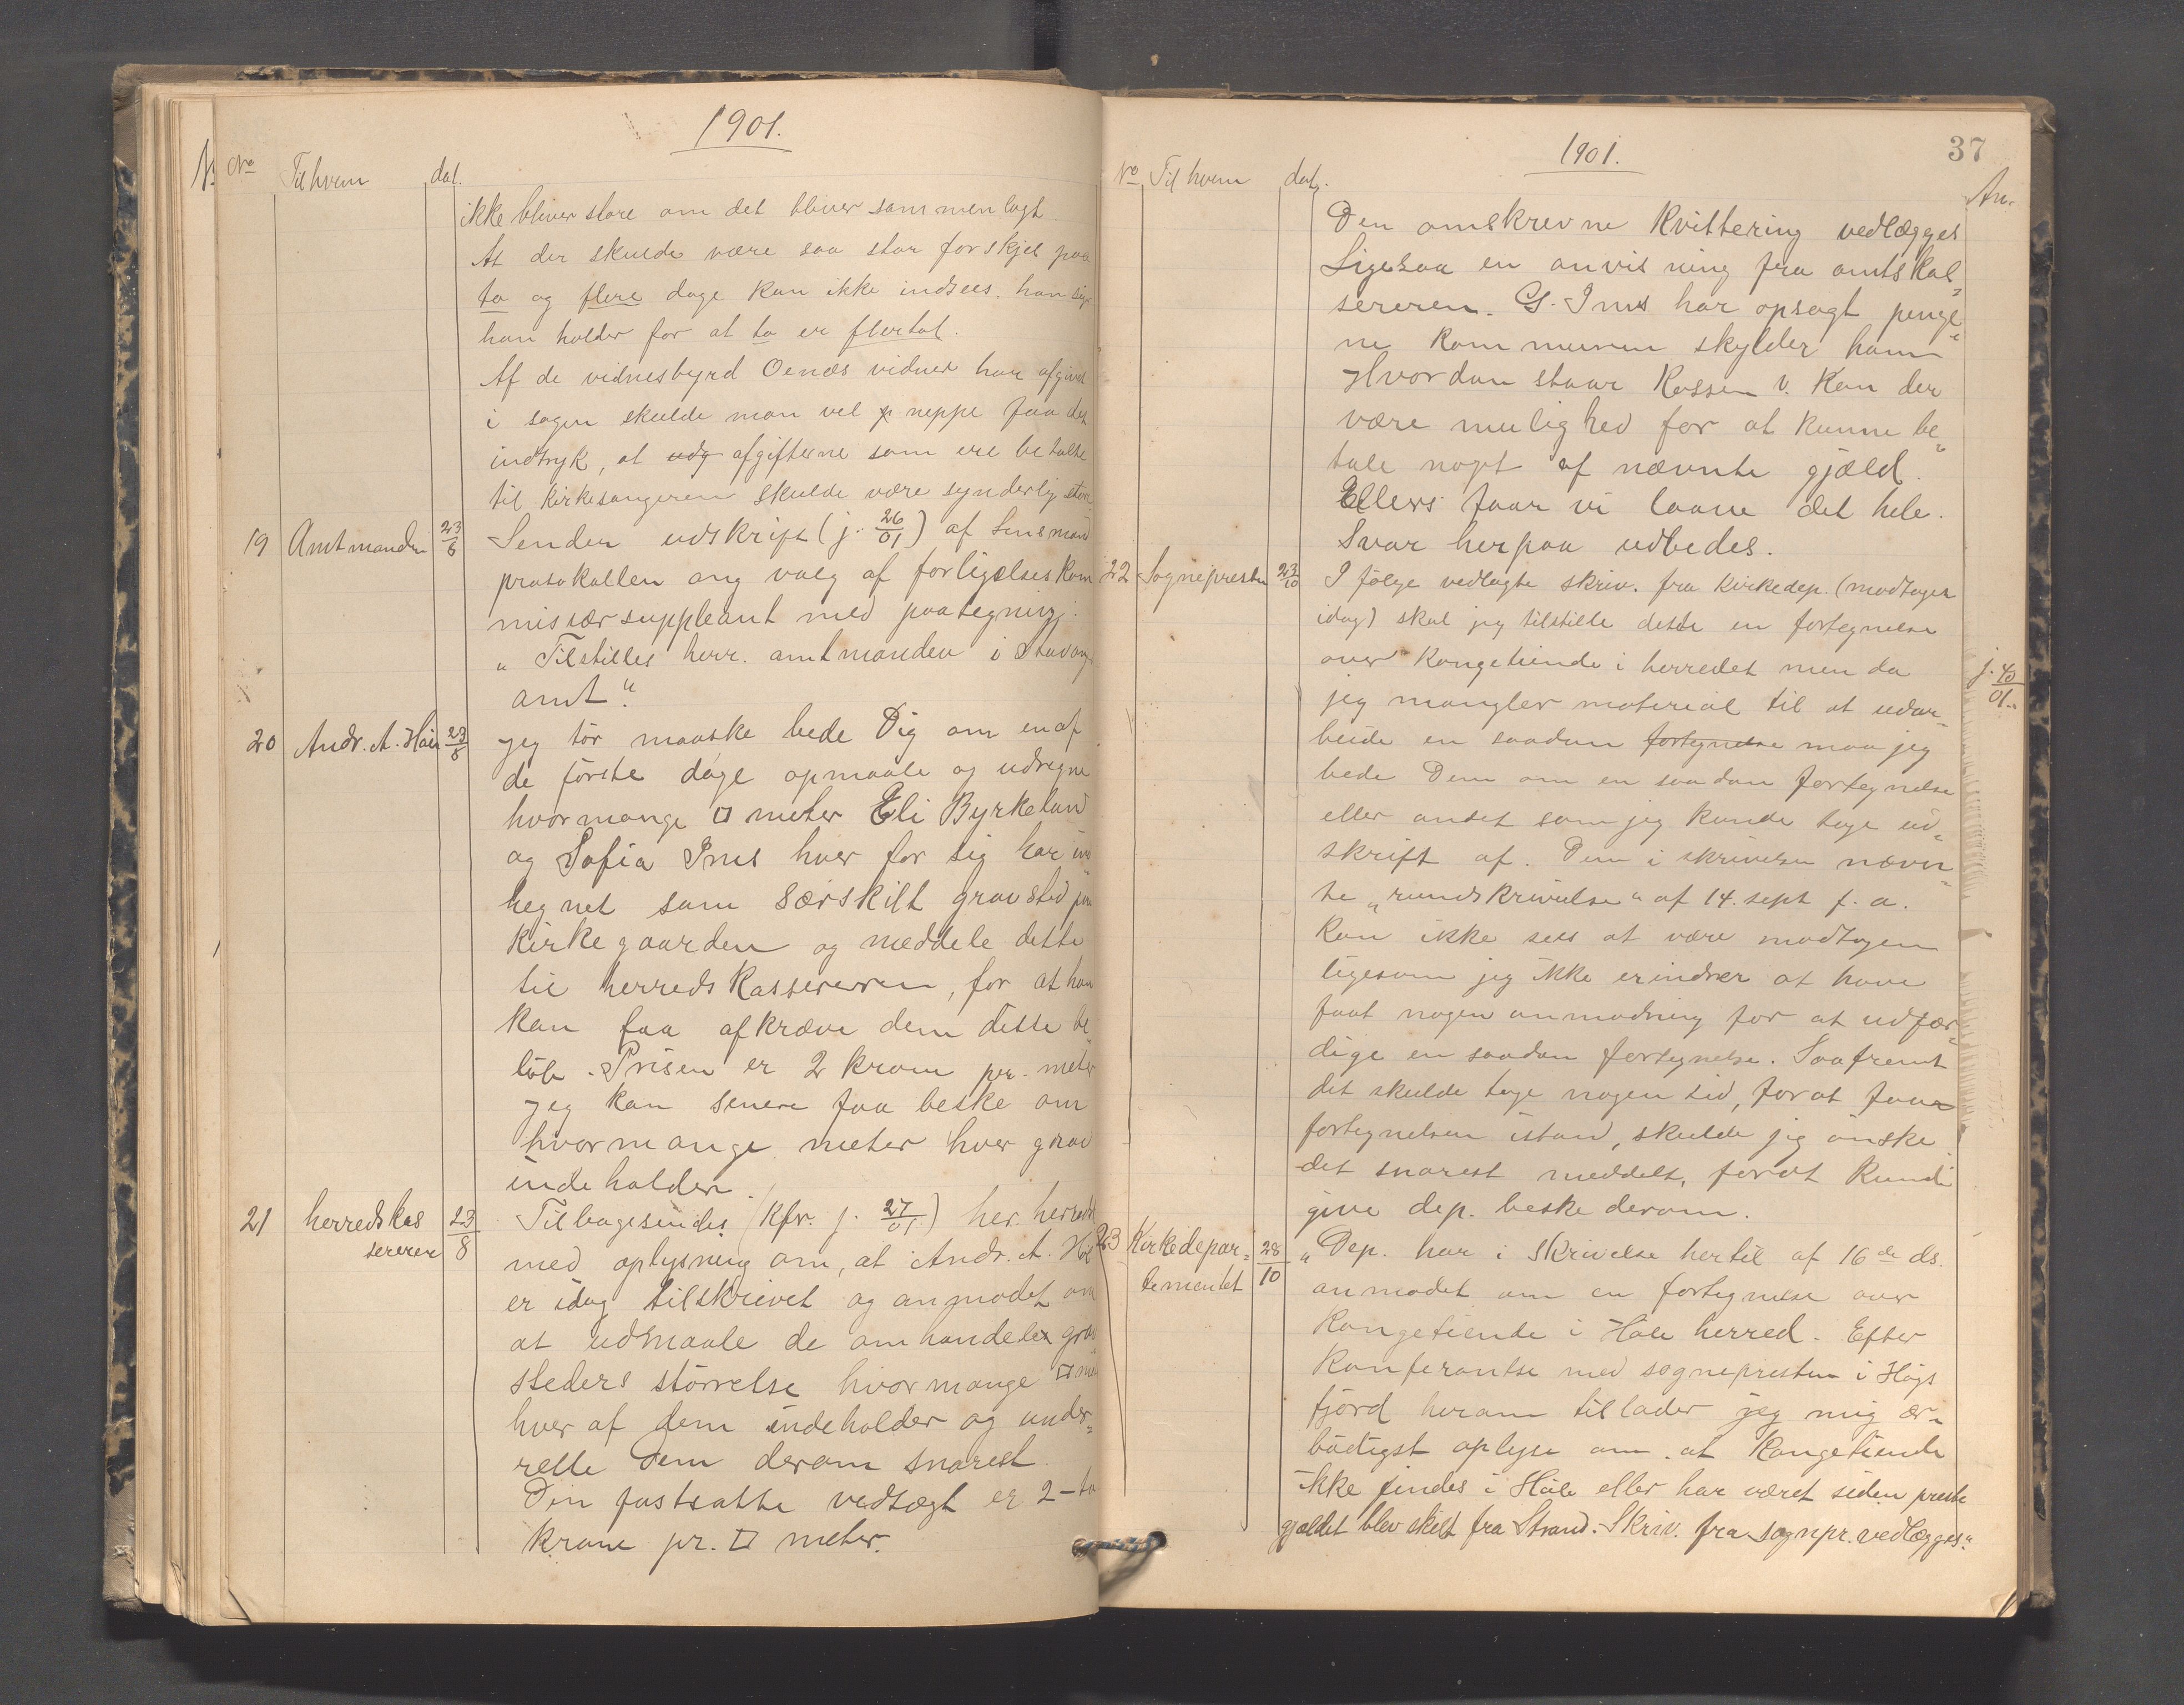 1901.
No Til hvem dat.
ikke bliver store om det bliver sammenlagt
At der skulde være saa stor forskjel paa
to og flere dage kan ikke indsees. han
han holder for at to er flertal.
Af de vidnesbyrd Oenæs vidner har afgivet
i sagen skulde man vel neppe faa det
indtryk, at udg afgifterne som ere betalte
til kirkesangeren skulde være synderlig store
19 Amtmanden 23/8 Sender udskrift (j. 26/01) af Lensmand
protokollen ang valg af forligelseskom
missærsuppleant med paategning:
„Tilstilles herr. amtmanden i Stavang
amt“.
20 Andr. A. Hole 23/8 Jeg tør maaske bede Dig om en af
de første dage opmaale og udregne
hvormange □ meter Eli Byrkeland
og Sofia Ims hver for sig har ind
hegnet som særskilt gravsted paa
kirkegaarden og meddele dette
til herredskassereren, for at han
kan faa afkræve dem dette be
løb. Prisen er 2 kroner pr. meter
Jeg kan senere faa beske om
hvormange meter hver grav
indeholder.
21 herredskas
sereren 23/8 Tilbagesendes (kfr. j. 27/01) her. herreds
med oplysning om, at Andr. A. Hole
er idag tilskrevet og anmodet om
at udmaale de omhandlede grav
steders størrelse hvormange □ me
hver af dem indeholder og under=
rette Dem derom snarest.
Den fastsatte vedtægt er 2 – to
krone pr. □ meter.
1901.
37
No Til hvem dat. An.
Den omskrevne kvittering vedlægges
Ligesaa en anvisning fra amtskas=
sereren. G. Ims har opsagt penge=
ne kommunen skylder ham
Hvordan staar kassen v. Kan der
være mulighed for at kunne be=
tale nogt af nævnte gjæld.
Ellers faar vi laane det hele.
Svar herpaa udbedes.
22 Sognepresten 23/10 I følge vedlagte skriv. fra kirkedep. (modtagen
idag) skal jeg tilstille dette en fortegnelse
over kongetiende i herredet men da
jeg mangler material til at udar= j. 40/01
beide en saadan fortegnelse maa jeg
bede Dem om en saadan fortegnelse
eller andet som jeg kunde tage ud=
skrift af. Den i skrivelsen nævn=
te „rundskrivelse“ af 14. sept f. a.
kan ikke sees at være modtagen
ligesom jeg ikke erindrer at have
faat nogen anmodning for at udfær=
dige en saadan fortegnelse. Saafremt
det skulde tage nogen tid, for at faa
fortegnelsen istand, skulde jeg ønske
det snarest meddelt, forat kunde
give dep. beske derom.
23 Kirkedepar=
tementet 28/10 „Dep. har i skrivelse hertil af 16de ds.
anmodet om en fortegnelse over
kongetiende i Hole herred. Efter
konferantse med sognepresten i Høgs
fjord herom tillader jeg mig ær=
bødigst oplyse om at kongetiende
ikke findes i Hole eller har været siden preste
gjældet blev skilt fra Strand. Skriv. fra sognepr. vedlægges.“